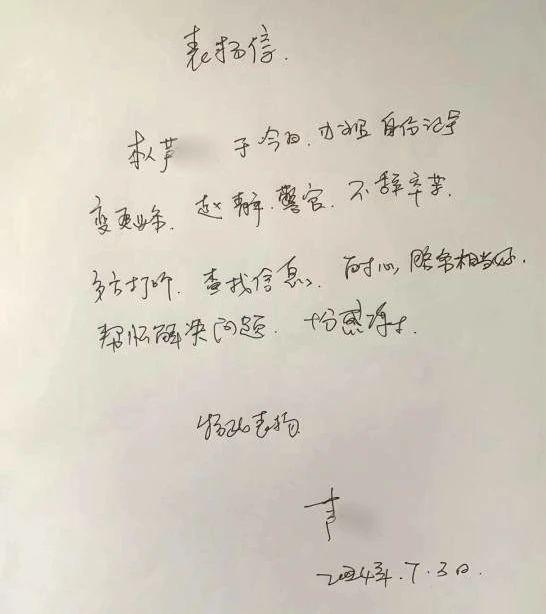 表扬信.
本人芦 于今日.办理身份证号
变更业务. 赵静.警官.不辞辛苦.
多方打听. 查找信息、耐心,服务相当好.
帮忙解决问题. 十分感谢.
特此表扬
芦
2024年.7.3日.